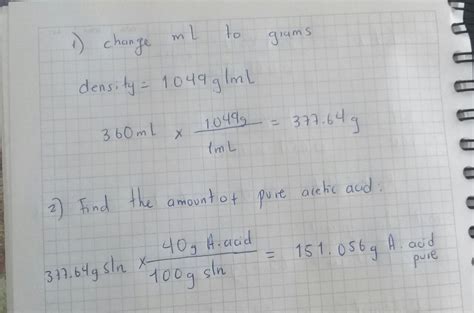 1) change mL to grams
density = 1049 g/mL
360mL x 1049g / 1mL = 377.64g
2) Find the amount of pure acetic acid:
377.64g sln x 40g A.acid / 100g sln = 151.056g A. acid pure